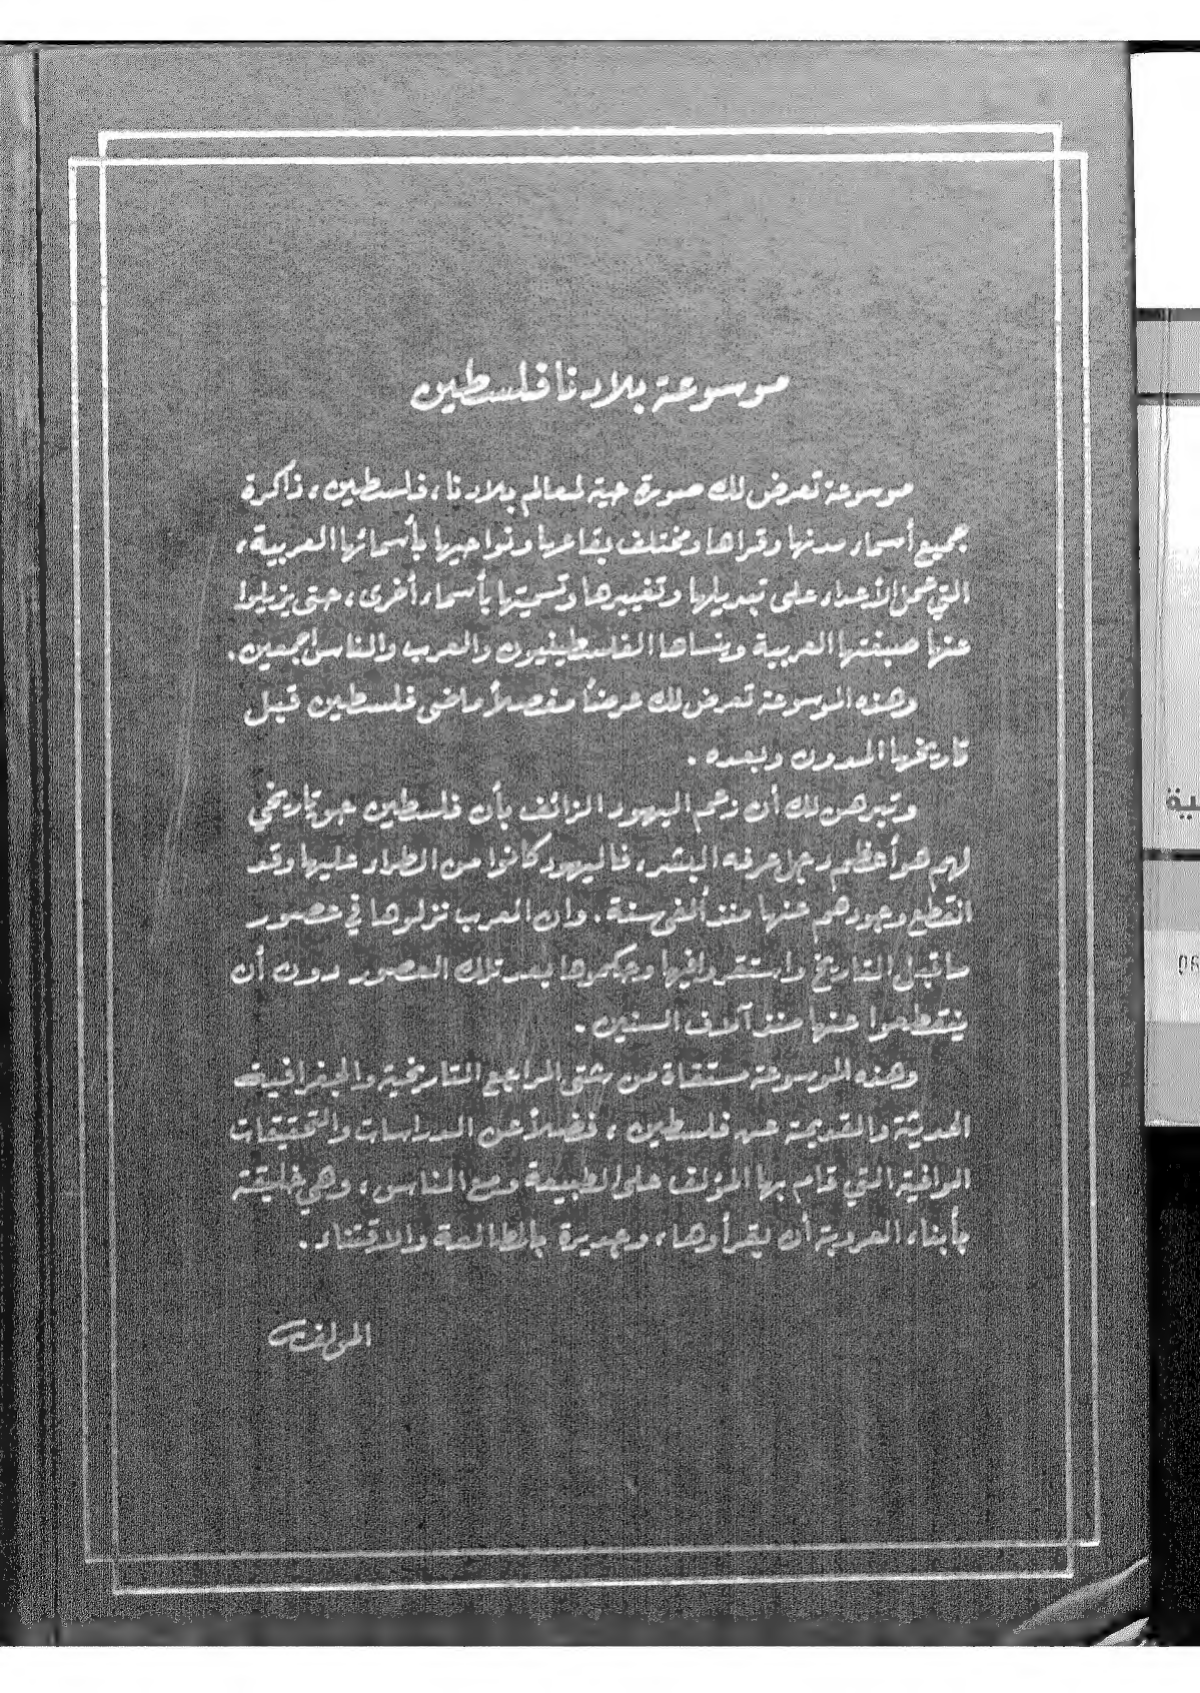 موسوعة بلادنا فلسطين
موسوعة تعرض لك صورة حية لمعالم بلادنا، فلسطين، ذاكرة
جميع أسماء مدنها وقراها ومختلف بقاعها ونواحيها بأسمائها العربية،
التي عمل الأعداء على تبديلها وتغييرها وتسميتها بأسماء أخرى، حتى يزيلوا
عنها صبغتها العربية وينساها الفلسطينيون والعرب والناس أجمعين.
وهذه الموسوعة تعرض لك عرضاً مفصلاً ماضي فلسطين قبل
تاريخها المدون وبعده.
وتبرهن لك أن زعم اليهود الزائف بأن فلسطين حق تاريخي
لهم هو أعظم دجل عرفه البشر، فاليهود كانوا من الطراء عليها وقد
انقطع وجودهم عنها منذ ألفي سنة. وان العرب نزلوها في عصور
ما قبل التاريخ واستقروا فيها وحكموها بعد تلك العصور دون أن
ينقطعوا عنها منذ آلاف السنين.
وهذه الموسوعة مستقاة من شتى المراجع التاريخية والجغرافية
الحديثة والقديمة عن فلسطين، فضلاً عن الدراسات والتحقيقات
الوافية التي قام بها المؤلف على الطبيعة ومع الناس، وهي خليقة
بأبناء العروبة أن يقرأوها، وجديرة بالمطالعة والاقتناء.
المؤلف
ية